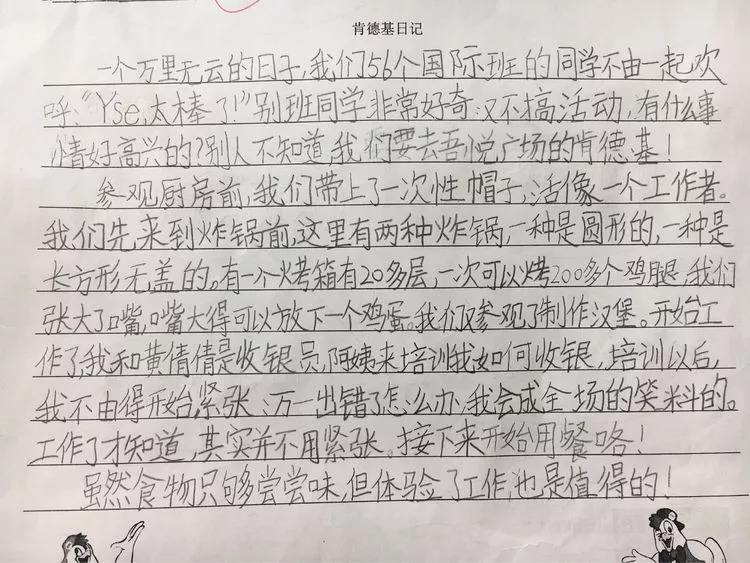 肯德基日记
一个万里无云的日子,我们56个国际班的同学不由一起欢
呼:“Yse,太棒了!”别班同学非常好奇:又不搞活动,有什么事
情好高兴的?别人不知道,我们要去吾悦广场的肯德基!
参观厨房前,我们带上了一次性帽子,活像一个工作者。
我们先来到炸锅前,这里有两种炸锅,一种是圆形的,一种是
长方形无盖的。有一个烤箱有20多层,一次可以烤200多个鸡腿,我们
张大了嘴,嘴大得可以放下一个鸡蛋。我们又参观了制作汉堡。开始工
作了,我和黄倩倩是收银员,阿姨来培训我如何收银,培训以后,
我不由得开始紧张:万一出错了怎么办,我会成全场的笑料的。
工作了才知道,其实并不用紧张。接下来开始用餐咯!
虽然食物只够尝尝味,但体验了工作,也是值得的!